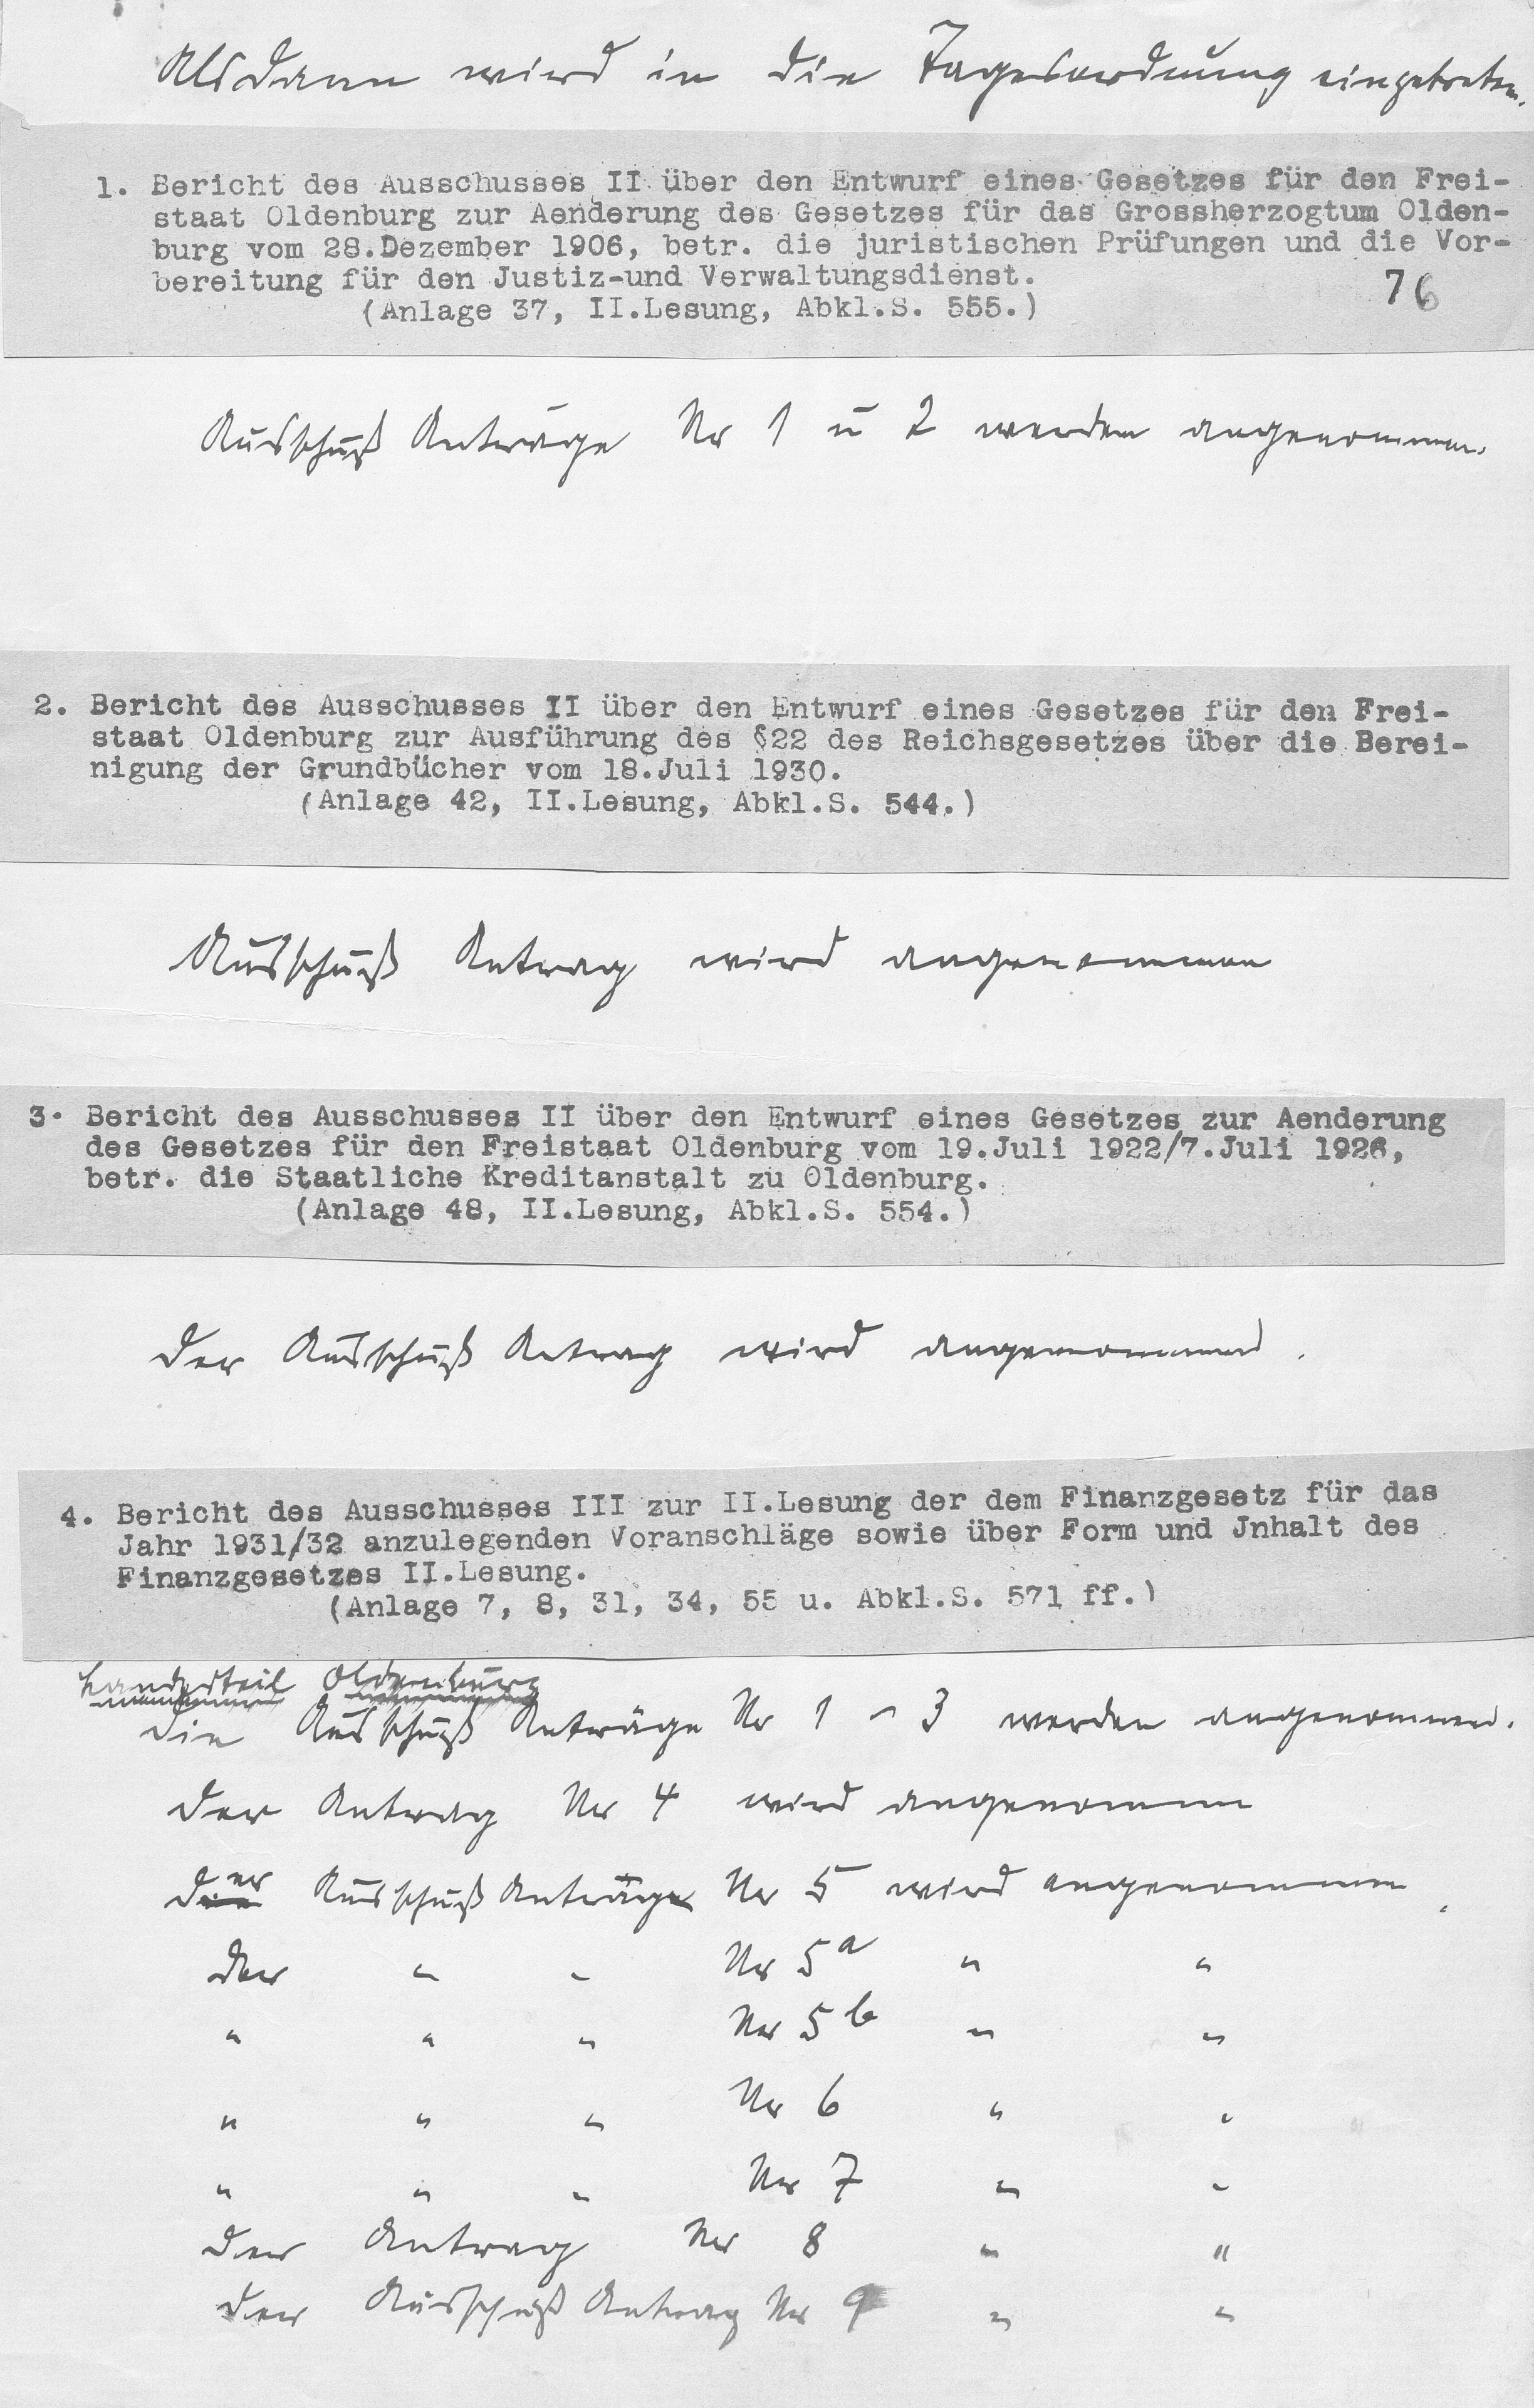 Alsdann wird in die Tagesordnung eingetreten.
1. Bericht des Ausschusses II über den Entwurf eines Gesetzes für den Frei-
staat Oldenburg zur Aenderung des Gesetzes für das Grossherzogtum Olden-
burg vom 28.Dezember 1906, betr. die juristischen Prüfungen und die Vor-
bereitung für den Justiz-und Verwaltungsdienst.
(Anlage 37, II.Lesung, Abkl.S. 555.)
76
Ausschuß Anträge Nr 1 u 2 werden angenommen.
2. Bericht des Ausschusses II über den Entwurf eines Gesetzes für den Frei-
staat Oldenburg zur Ausführung des §22 des Reichsgesetzes über die Berei-
nigung der Grundbücher vom 18.Juli 1930.
(Anlage 42, II.Lesung, Abkl.S. 544.)
Ausschuß Antrag wird angenommen
3. Bericht des Ausschusses II über den Entwurf eines Gesetzes zur Aenderung
des Gesetzes für den Freistaat Oldenburg vom 19.Juli 1922/7.Juli 1926,
betr. die Staatliche Kreditanstalt zu Oldenburg.
(Anlage 48, II.Lesung, Abkl.S. 554.)
Der Ausschuß Antrag wird angenommen.
4. Bericht des Ausschusses III zur II.Lesung der dem Finanzgesetz für das
Jahr 1931/32 anzulegenden Voranschläge sowie über Form und Jnhalt des
Finanzgesetzes II.Lesung.
(Anlage 7, 8, 31, 34, 55 u. Abkl.S. 571 ff.)
Landesteil Oldenburg
Die Ausschuß Anträge Nr 1 - 3 werden angenommen.
Der Antrag Nr 4 wird angenommen
Der Ausschuß Antrag Nr 5 wird angenommen.
Der " " Nr 5a " "
" " " Nr 5b " "
" " " Nr 6 " "
" " " Nr 7 " "
Der Antrag Nr 8 " "
Der Ausschuß Antrag Nr 9 " "